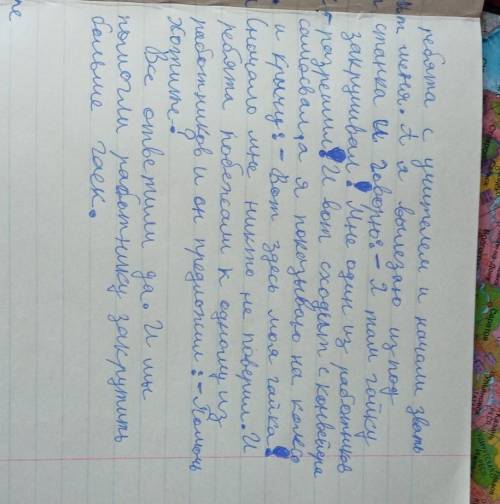 ребята с учителем и начали звать
меня. А я вылезаю из под
станка и говорю: - Я там гайку
закручивал! Мне один из работников
разрешил! И вот сходит с конвейера
самосвал, а я показываю на колесо
и кричу: - Вот здесь моя гайка!
Сначало мне никто не поверил. И
ребята побежали к одному из
работников и он предложил: - Помочь
Хотите.
Все ответили да. И мы
помогли работнику закрутить
больше гаек.